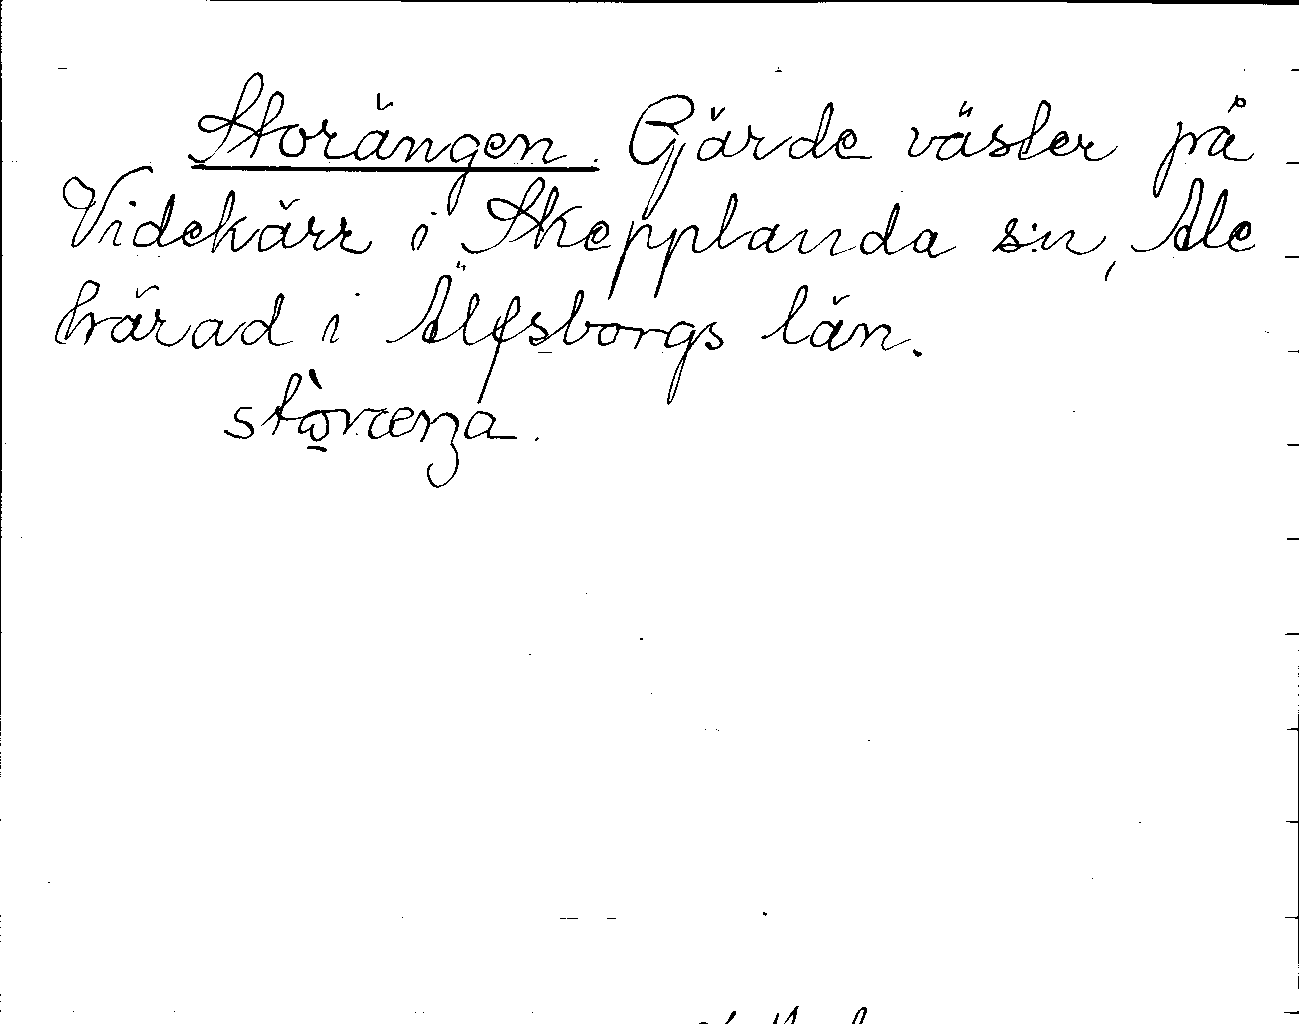 Storängen. Gärde väster på
Videkärr i Skepplanda s:n, Ale
härad i Älfsborgs län.